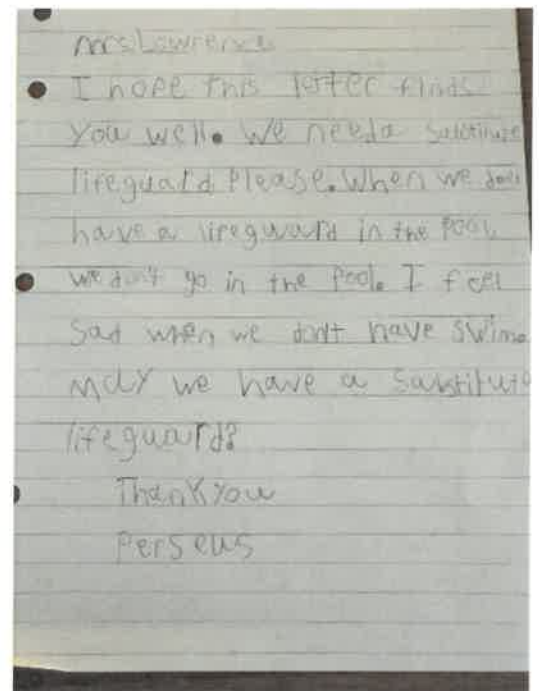 Mrs. Lawrence
I hope this letter finds
you well. We need a substitute
lifeguard Please. When we don't
have a lifeguard in the Pool,
we don't go in the Pool. I feel
Sad when we don't have swim.
May we have a Substitute
lifeguard?
Thank you
Perseus